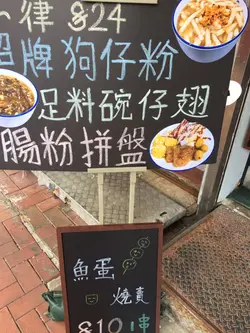 一律 $24
招牌狗仔粉
足料碗仔翅
腸粉拼盤
魚蛋
燒賣
$10串